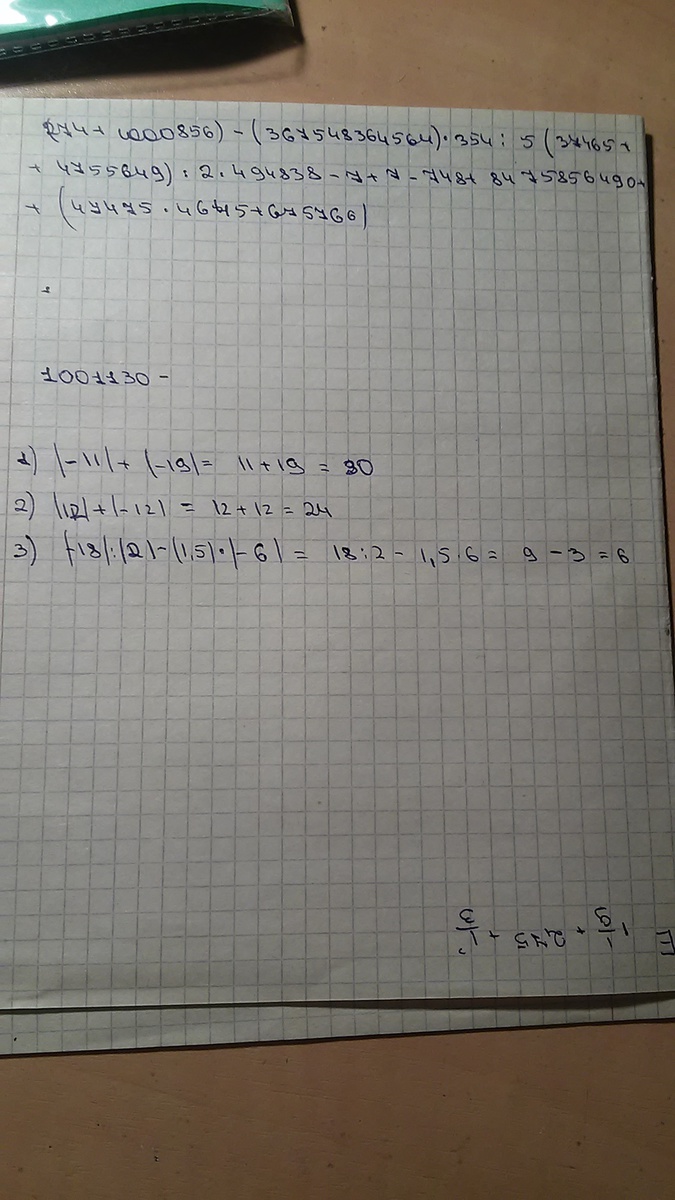 (274 + 1000856) - (367548364564) · 354 : 5 (37465 +
+ 4755649) : 2 · 494838 - 7 + 7 - 748 + 8475856490 +
+ (47475 · 4645 + 675766)
1001130 -
1) |-11| + |-19| = 11 + 19 = 30
2) |12| + |-12| = 12 + 12 = 24
3) |-18| : |2| - |1,5| · |-6| = 18 : 2 - 1,5 · 6 = 9 - 3 = 6
1 1/9 + 2,75 + 1/3